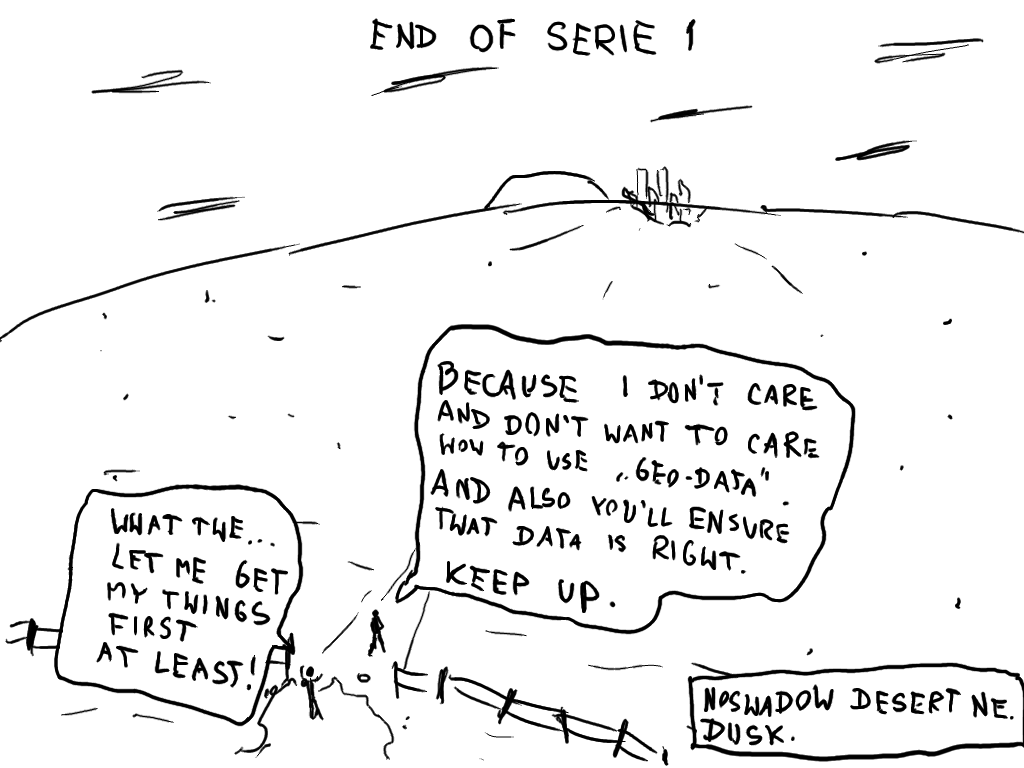 END OF SERIE 1
BECAUSE I DON'T CARE
AND DON'T WANT TO CARE
HOW TO USE „GEO-DATA".
AND ALSO YOU'LL ENSURE
THAT DATA IS RIGHT.
KEEP UP.
WHAT THE...
LET ME GET
MY THINGS
FIRST
AT LEAST!
NOSHADOW DESERT NE.
DUSK.